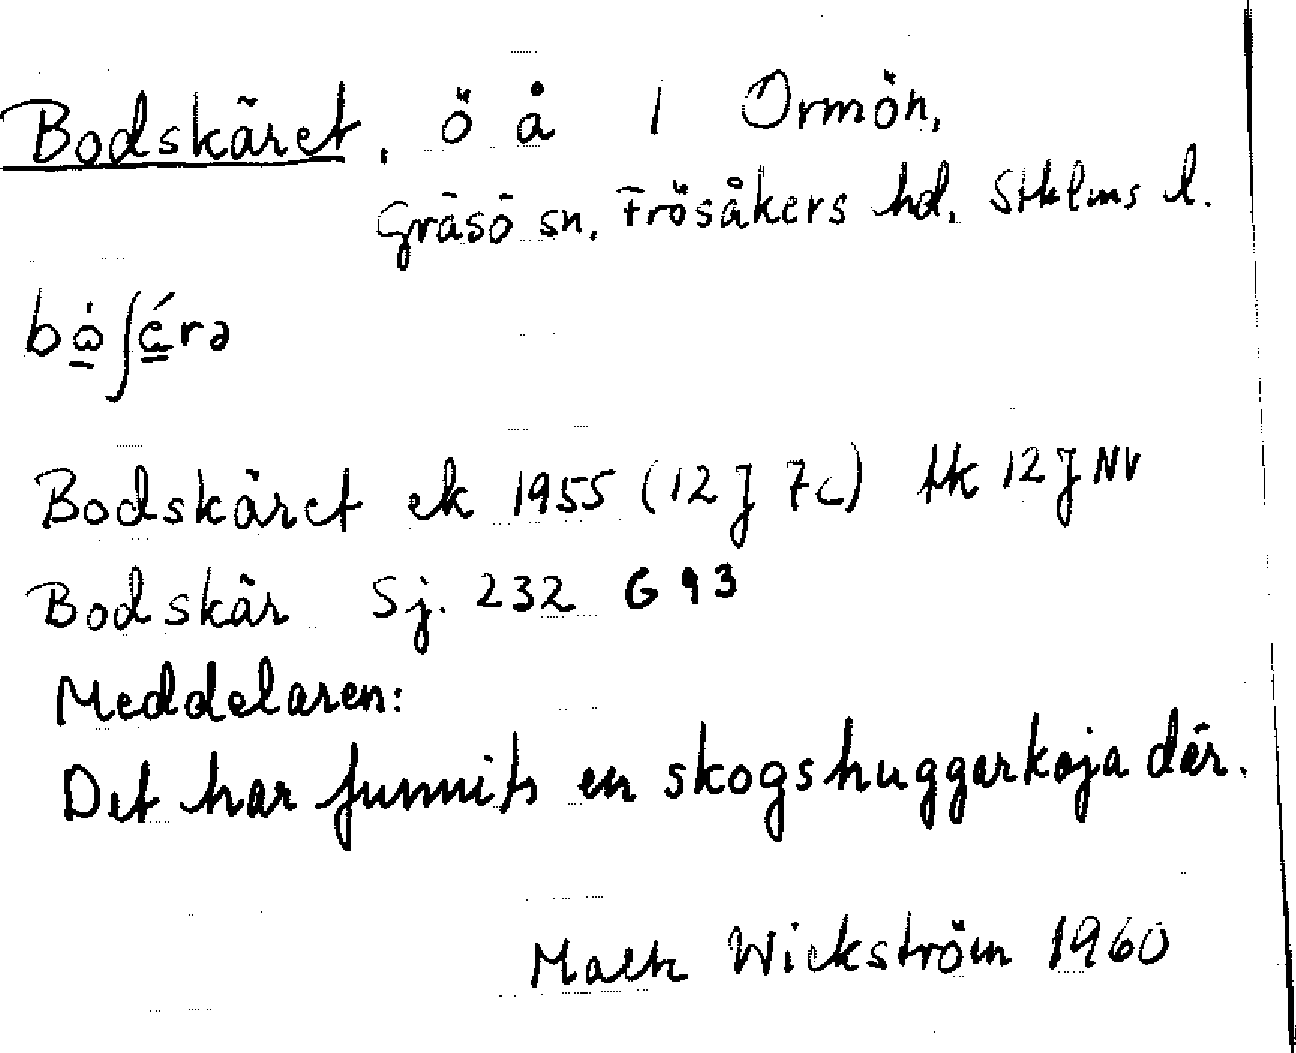 Bodskäret, ö å 1 Ormön,
Gräsö sn, Frösåkers hd, Sthlms l.
Bodskäret ek 1955 (12 J 7c) tk 12 J NV
Bodskär Sj. 232 G 93
Meddelaren:
Det har funnits en skogshuggarkoja där.
Wickström 1960